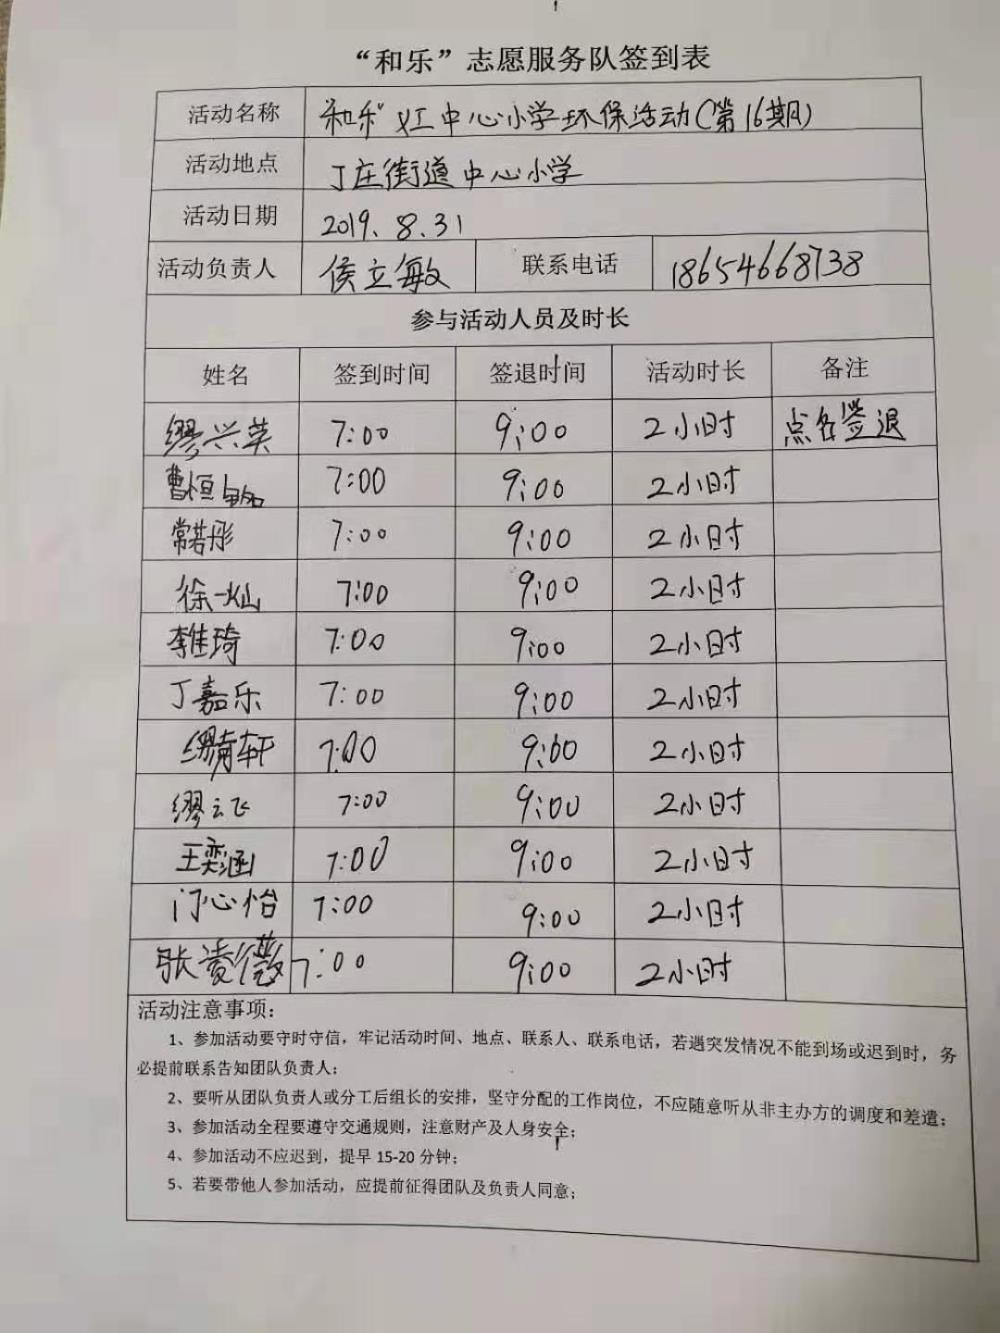 “和乐”志愿服务队签到表
活动名称 和乐"红中心小学环保活动(第16期)
活动地点 丁庄街道中心小学
活动日期 2019.8.31
活动负责人 侯立敏 联系电话 18654668738
参与活动人员及时长
姓名 签到时间 签退时间 活动时长 备注
缪兴英 7:00 9:00 2小时 点名签退
曹恒铭 7:00 9:00 2小时
常若彤 7:00 9:00 2小时
徐一灿 7:00 9:00 2小时
李佳琦 7:00 9:00 2小时
丁嘉乐 7:00 9:00 2小时
缪青轩 7:00 9:00 2小时
缪云飞 7:00 9:00 2小时
王奕涵 7:00 9:00 2小时
门心怡 7:00 9:00 2小时
张凌薇 7:00 9:00 2小时
活动注意事项:
1、参加活动要守时守信，牢记活动时间、地点、联系人、联系电话，若遇突发情况不能到场或迟到时，务
必提前联系告知团队负责人;
2、要听从团队负责人或分工后组长的安排，坚守分配的工作岗位，不应随意听从非主办方的调度和差遣;
3、参加活动全程要遵守交通规则，注意财产及人身安全;
4、参加活动不应迟到，提早 15-20 分钟;
5、若要带他人参加活动，应提前征得团队及负责人同意;